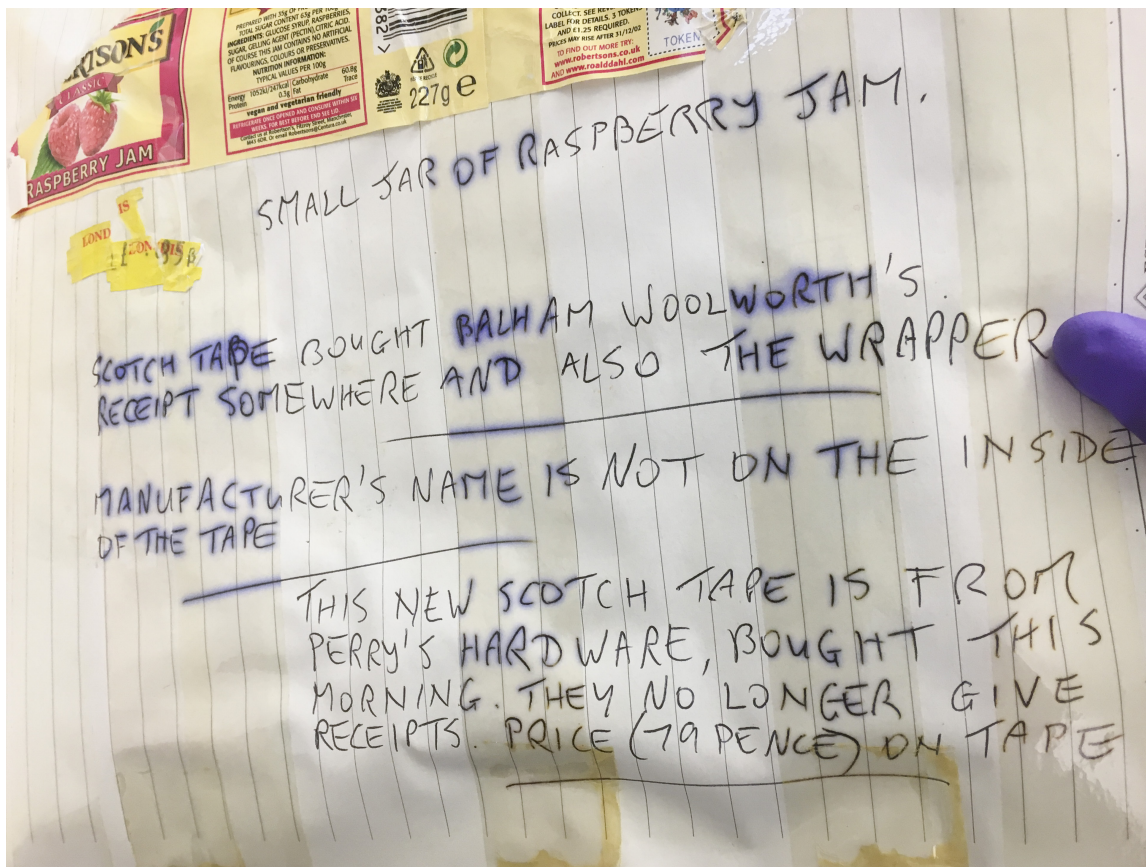 RTSON'S
CLASSIC
RASPBERRY JAM
PREPARED WITH 35g OF
TOTAL SUGAR CONTENT 63g PER
INGREDIENTS: GLUCOSE SYRUP, RASPBERRIES,
SUGAR, GELLING AGENT (PECTIN), CITRIC ACID.
OF COURSE THIS JAM CONTAINS NO ARTIFICIAL
FLAVOURINGS, COLOURS OR PRESERVATIVES.
NUTRITION INFORMATION:
TYPICAL VALUES PER 100g
Energy 1052kJ/247kcal Carbohydrate 60.8g
Protein 0.3g Fat Trace
vegan and vegetarian friendly
REFRIGERATE ONCE OPENED AND CONSUME WITHIN SIX
WEEKS. FOR BEST BEFORE END SEE LID.
582 >
227g e
COLLECT. SEE
LABEL FOR DETAILS. 3 TOKEN
AND £1.25 REQUIRED.
PRICES MAY RISE AFTER 31/12/02
TO FIND OUT MORE TRY:
www.robertsons.co.uk
AND www.roalddahl.com
TOKEN
SMALL JAR OF RASPBERRY JAM.
LOND
IS
SCOTCH TAPE BOUGHT BALHAM WOOLWORTH'S.
RECEIPT SOMEWHERE AND ALSO THE WRAPPER
MANUFACTURER'S NAME IS NOT ON THE INSIDE
OF THE TAPE
THIS NEW SCOTCH TAPE IS FROM
PERRY'S HARDWARE, BOUGHT THIS
MORNING. THEY NO LONGER GIVE
RECEIPTS. PRICE (79 PENCE) ON TAPE